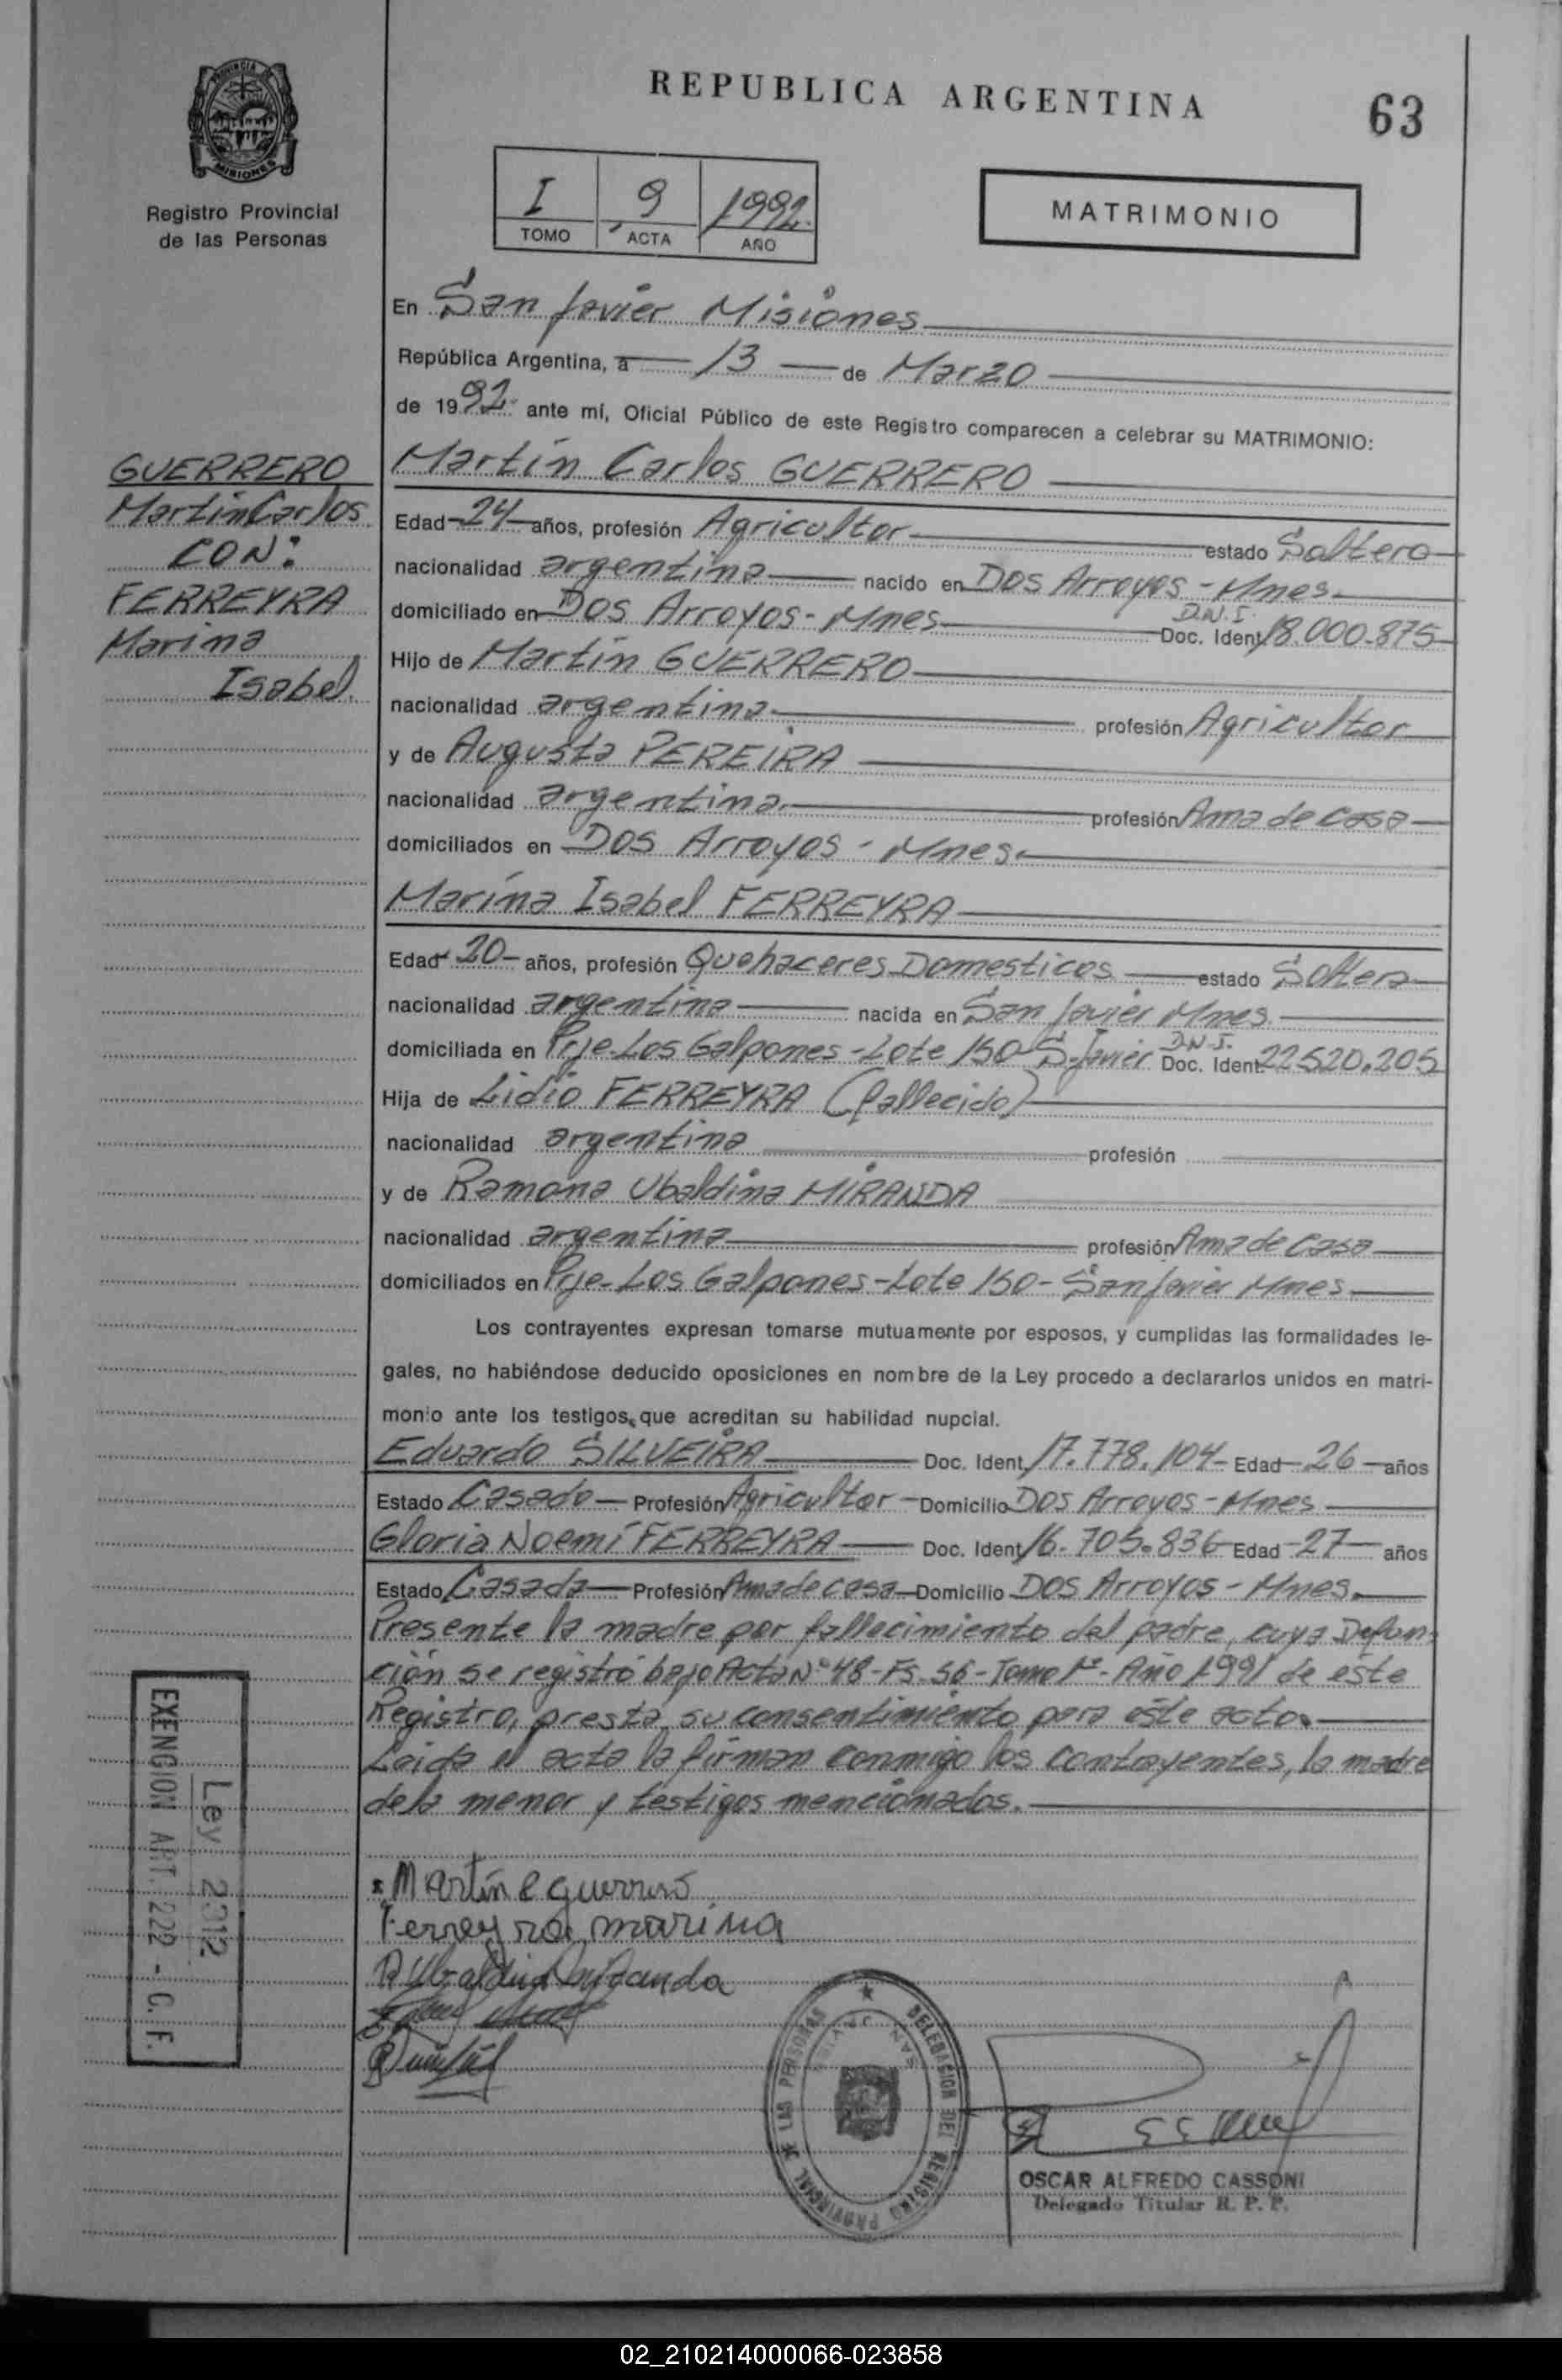 REPUBLICA ARGENTINA
63
PROVINCIA DE MISIONES
Registro Provincial
de las Personas
I 9 1992.
TOMO ACTA AÑO
MATRIMONIO
En San Javier Misiones
República Argentina, a 13 de Marzo
de 1992. ante mí, Oficial Público de este Registro comparecen a celebrar su MATRIMONIO:
GUERRERO
Martin Carlos
CON:
FERREYRA
Marina
Isabel.
Martín Carlos GUERRERO
Edad 24 años, profesión Agricultor estado Soltero
nacionalidad argentina nacido en Dos Arroyos - Mnes.
domiciliado en Dos Arroyos - Mnes D.N.I. Doc. Ident. 18.000.875
Hijo de Martín GUERRERO
nacionalidad argentina profesión Agricultor
y de Augusta PEREIRA
nacionalidad argentina. profesión Ama de casa
domiciliados en Dos Arroyos - Mnes.
Marina Isabel FERREYRA
Edad 20 años, profesión Quehaceres Domesticos estado Soltera
nacionalidad argentina nacida en San Javier Mnes.
domiciliada en Prje-Los Galpones - Lote 150 S.Javier D.N.I. Doc. Ident. 22.520.205
Hija de Lidio FERREYRA (fallecido)
nacionalidad argentina profesión
y de Ramona Ubaldina MIRANDA
nacionalidad argentina profesión Ama de Casa
domiciliados en Prje-Los Galpones - Lote 150 - San Javier Mnes.
Los contrayentes expresan tomarse mutuamente por esposos, y cumplidas las formalidades le-
gales, no habiéndose deducido oposiciones en nombre de la Ley procedo a declararlos unidos en matri-
monio ante los testigos que acreditan su habilidad nupcial.
Eduardo SILVEIRA Doc. Ident. 17.778.104 Edad 26 años
Estado Casado Profesión Agricultor Domicilio Dos Arroyos - Mnes
Gloria Noemí FERREYRA Doc. Ident. 16.705.836 Edad 27 años
Estado Casada Profesión Ama de casa Domicilio Dos Arroyos - Mnes.
Presente la madre por fallecimiento del padre, cuya Defun-
ción se registró bajo Acta Nº 48 - Fs. 56 - Tomo 1º - Año 1991 de este
Registro, presta su consentimiento para éste acto.
Leida el acta la firman conmigo los contrayentes, la madre
de la menor y testigos mencionados.
EXENCION ART. 222 - C. F.
Ley 2312
Martín C guerrero
Ferreyra marina
R Ubaldina Miranda
DELEGACION DEL REGISTRO PROVINCIAL DE LAS PERSONAS
SAN JAVIER
OSCAR ALFREDO CASSONI
Delegado Titular R. P. P.
02_210214000066-023858